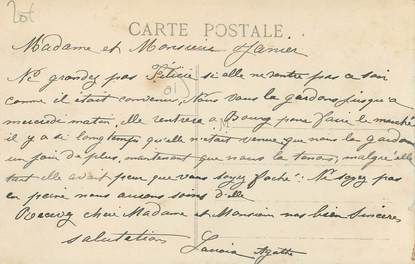 20f
CARTE POSTALE
Madame et Monsieur Janier
Ne grondez pas Félicie si elle ne rentre pas ce soir
comme il était convenu, Nous vous la gardons jusqu'a
mercredi matin, elle rentrera a Bourg pour faire le marché
il y a si longtemps qu'elle n'etait venue que nous la gardons
un jour de plus, maintenant que nous la tenons, malgré elle
tant elle avait peur que vous soyez faché. Ne soyez pas
en peine nous aurons soins d'elle
Recevez cheri Madame et Monsieur nos bien sincères
salutation
Agathe